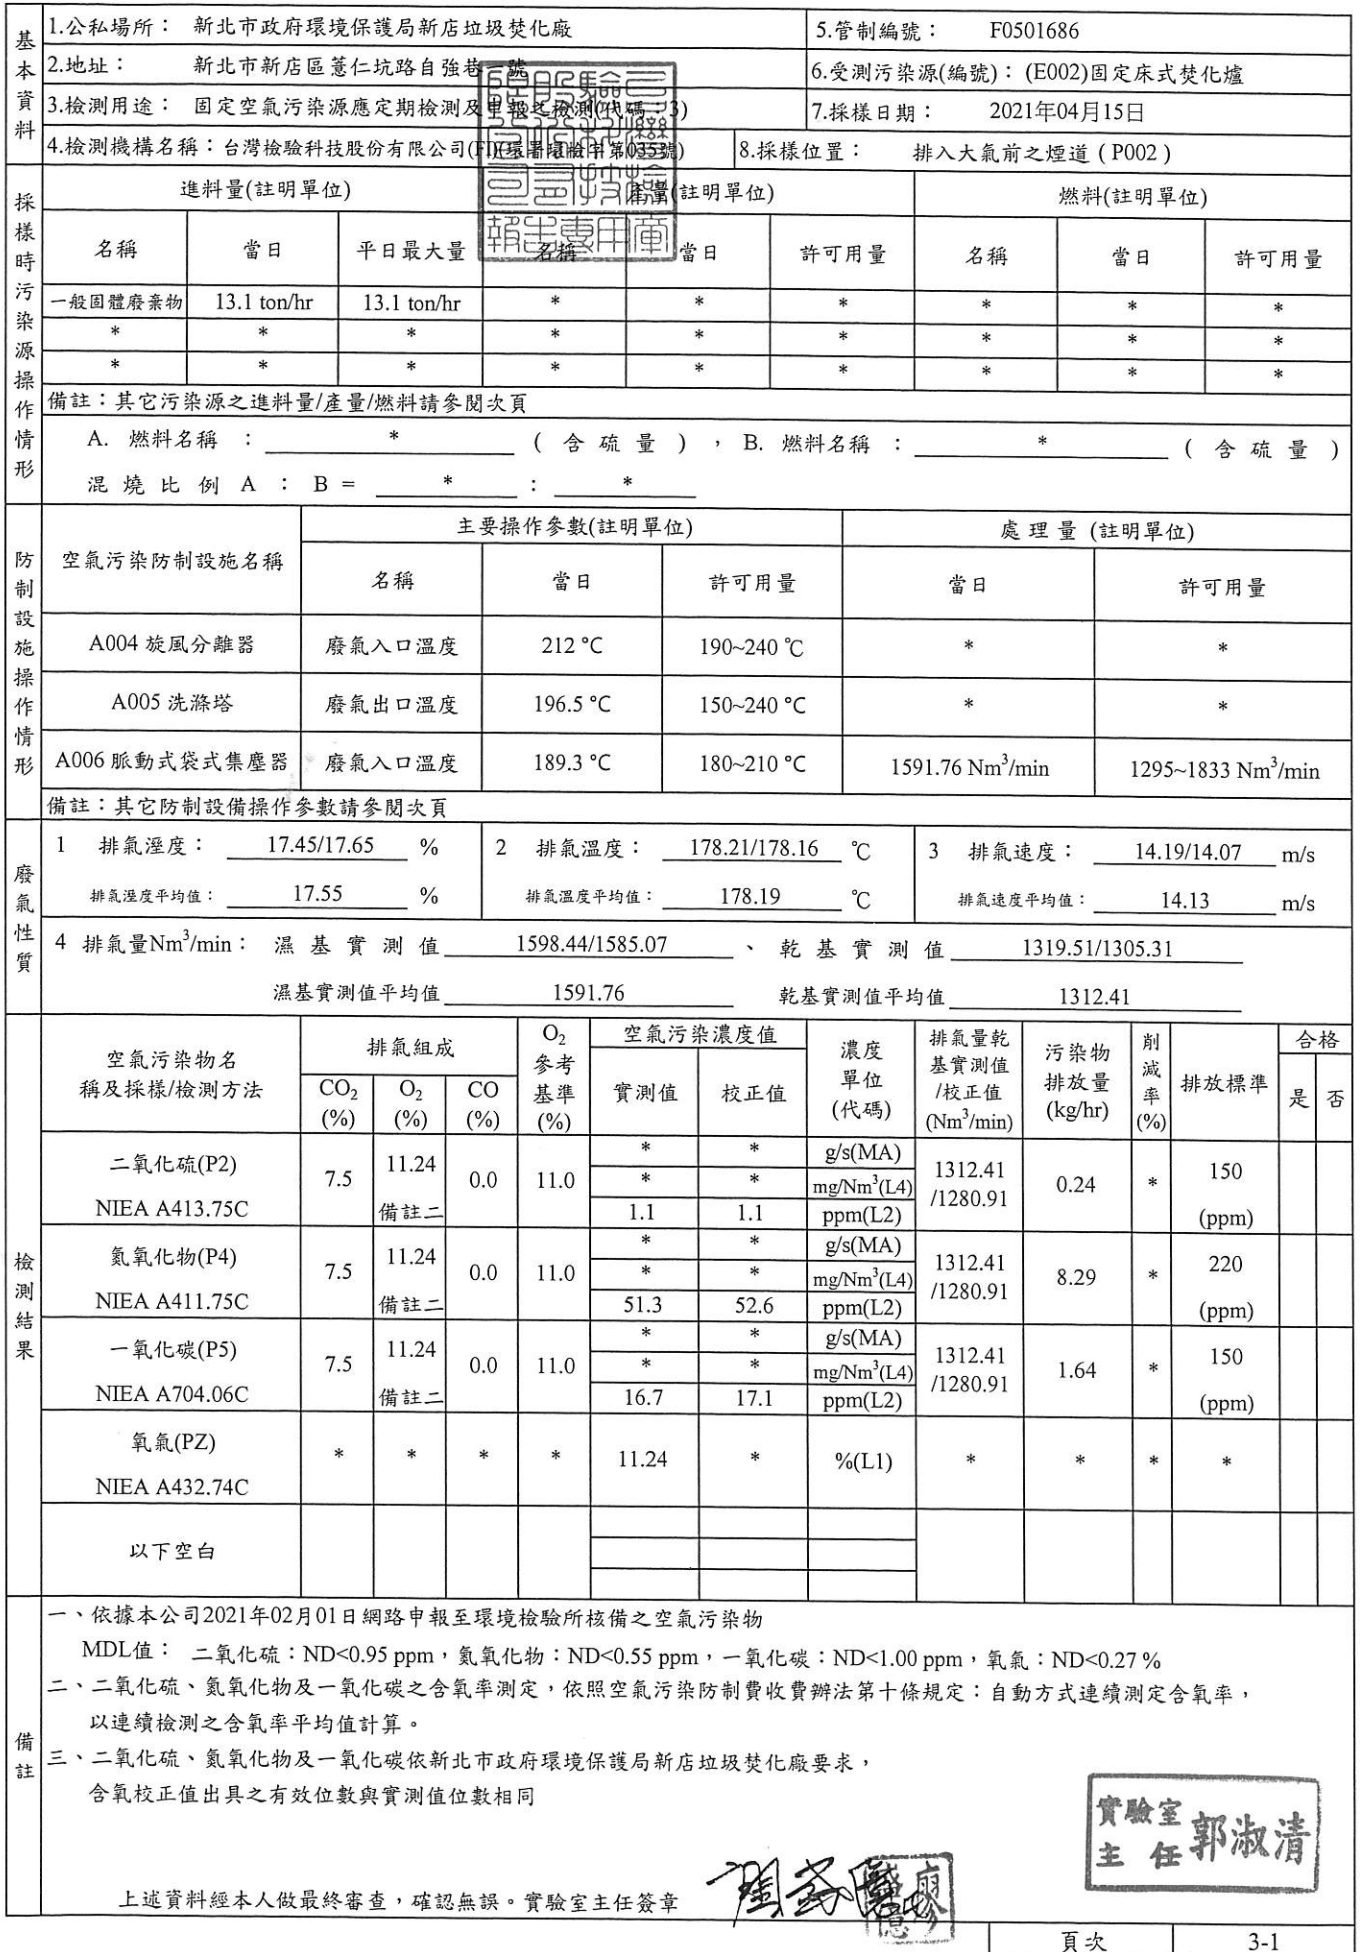 基本資料
1.公私場所： 新北市政府環境保護局新店垃圾焚化廠
5.管制編號： F0501686
2.地址： 新北市新店區薏仁坑路自強巷一號
6.受測污染源(編號)： (E002)固定床式焚化爐
3.檢測用途： 固定空氣污染源應定期檢測及申報之檢測(代碼：3)
7.採樣日期： 2021年04月15日
4.檢測機構名稱：台灣檢驗科技股份有限公司(FI)(環署環檢字第035號)
8.採樣位置： 排入大氣前之煙道 ( P002 )
採樣時污染源操作情形
進料量(註明單位) 產量(註明單位) 燃料(註明單位)
名稱 當日 平日最大量 名稱 當日 許可用量 名稱 當日 許可用量
一般固體廢棄物 13.1 ton/hr 13.1 ton/hr * * * * * *
* * * * * * * * *
* * * * * * * * *
備註：其它污染源之進料量/產量/燃料請參閱次頁
A. 燃料名稱 ： * ( 含 硫 量 ) ， B. 燃料名稱 ： * ( 含 硫 量 )
混 燒 比 例 A ： B = * ： *
防制設施操作情形
空氣污染防制設施名稱 主要操作參數(註明單位) 處 理 量 (註明單位)
名稱 當日 許可用量 當日 許可用量
A004 旋風分離器 廢氣入口溫度 212 °C 190~240 ℃ * *
A005 洗滌塔 廢氣出口溫度 196.5 °C 150~240 °C * *
A006 脈動式袋式集塵器 廢氣入口溫度 189.3 °C 180~210 °C 1591.76 Nm³/min 1295~1833 Nm³/min
備註：其它防制設備操作參數請參閱次頁
廢氣性質
1 排氣溼度： 17.45/17.65 % 2 排氣溫度： 178.21/178.16 ℃ 3 排氣速度： 14.19/14.07 m/s
排氣溼度平均值： 17.55 % 排氣溫度平均值： 178.19 ℃ 排氣速度平均值： 14.13 m/s
4 排氣量Nm³/min： 濕 基 實 測 值 1598.44/1585.07 、 乾 基 實 測 值 1319.51/1305.31
濕基實測值平均值 1591.76 乾基實測值平均值 1312.41
檢測結果
空氣污染物名稱及採樣/檢測方法 排氣組成 O₂參考基準(%) 空氣污染濃度值 濃度單位(代碼) 排氣量乾基實測值/校正值(Nm³/min) 污染物排放量(kg/hr) 削減率(%) 排放標準 合格
CO₂(%) O₂(%) CO(%) 實測值 校正值 是 否
二氧化硫(P2) NIEA A413.75C 7.5 11.24 備註二 0.0 11.0 * * g/s(MA) 1312.41/1280.91 0.24 * 150 (ppm)
* * mg/Nm³(L4)
1.1 1.1 ppm(L2)
氮氧化物(P4) NIEA A411.75C 7.5 11.24 備註二 0.0 11.0 * * g/s(MA) 1312.41/1280.91 8.29 * 220 (ppm)
* * mg/Nm³(L4)
51.3 52.6 ppm(L2)
一氧化碳(P5) NIEA A704.06C 7.5 11.24 備註二 0.0 11.0 * * g/s(MA) 1312.41/1280.91 1.64 * 150 (ppm)
* * mg/Nm³(L4)
16.7 17.1 ppm(L2)
氧氣(PZ) NIEA A432.74C * * * * 11.24 * %(L1) * * * *
以下空白
備註
一、依據本公司2021年02月01日網路申報至環境檢驗所核備之空氣污染物
MDL值： 二氧化硫：ND<0.95 ppm，氮氧化物：ND<0.55 ppm，一氧化碳：ND<1.00 ppm，氧氣：ND<0.27 %
二、二氧化硫、氮氧化物及一氧化碳之含氧率測定，依照空氣污染防制費收費辦法第十條規定：自動方式連續測定含氧率，
以連續檢測之含氧率平均值計算。
三、二氧化硫、氮氧化物及一氧化碳依新北市政府環境保護局新店垃圾焚化廠要求，
含氧校正值出具之有效位數與實測值位數相同
實驗室主任 郭淑清
上述資料經本人做最終審查，確認無誤。實驗室主任簽章
頁次 3-1